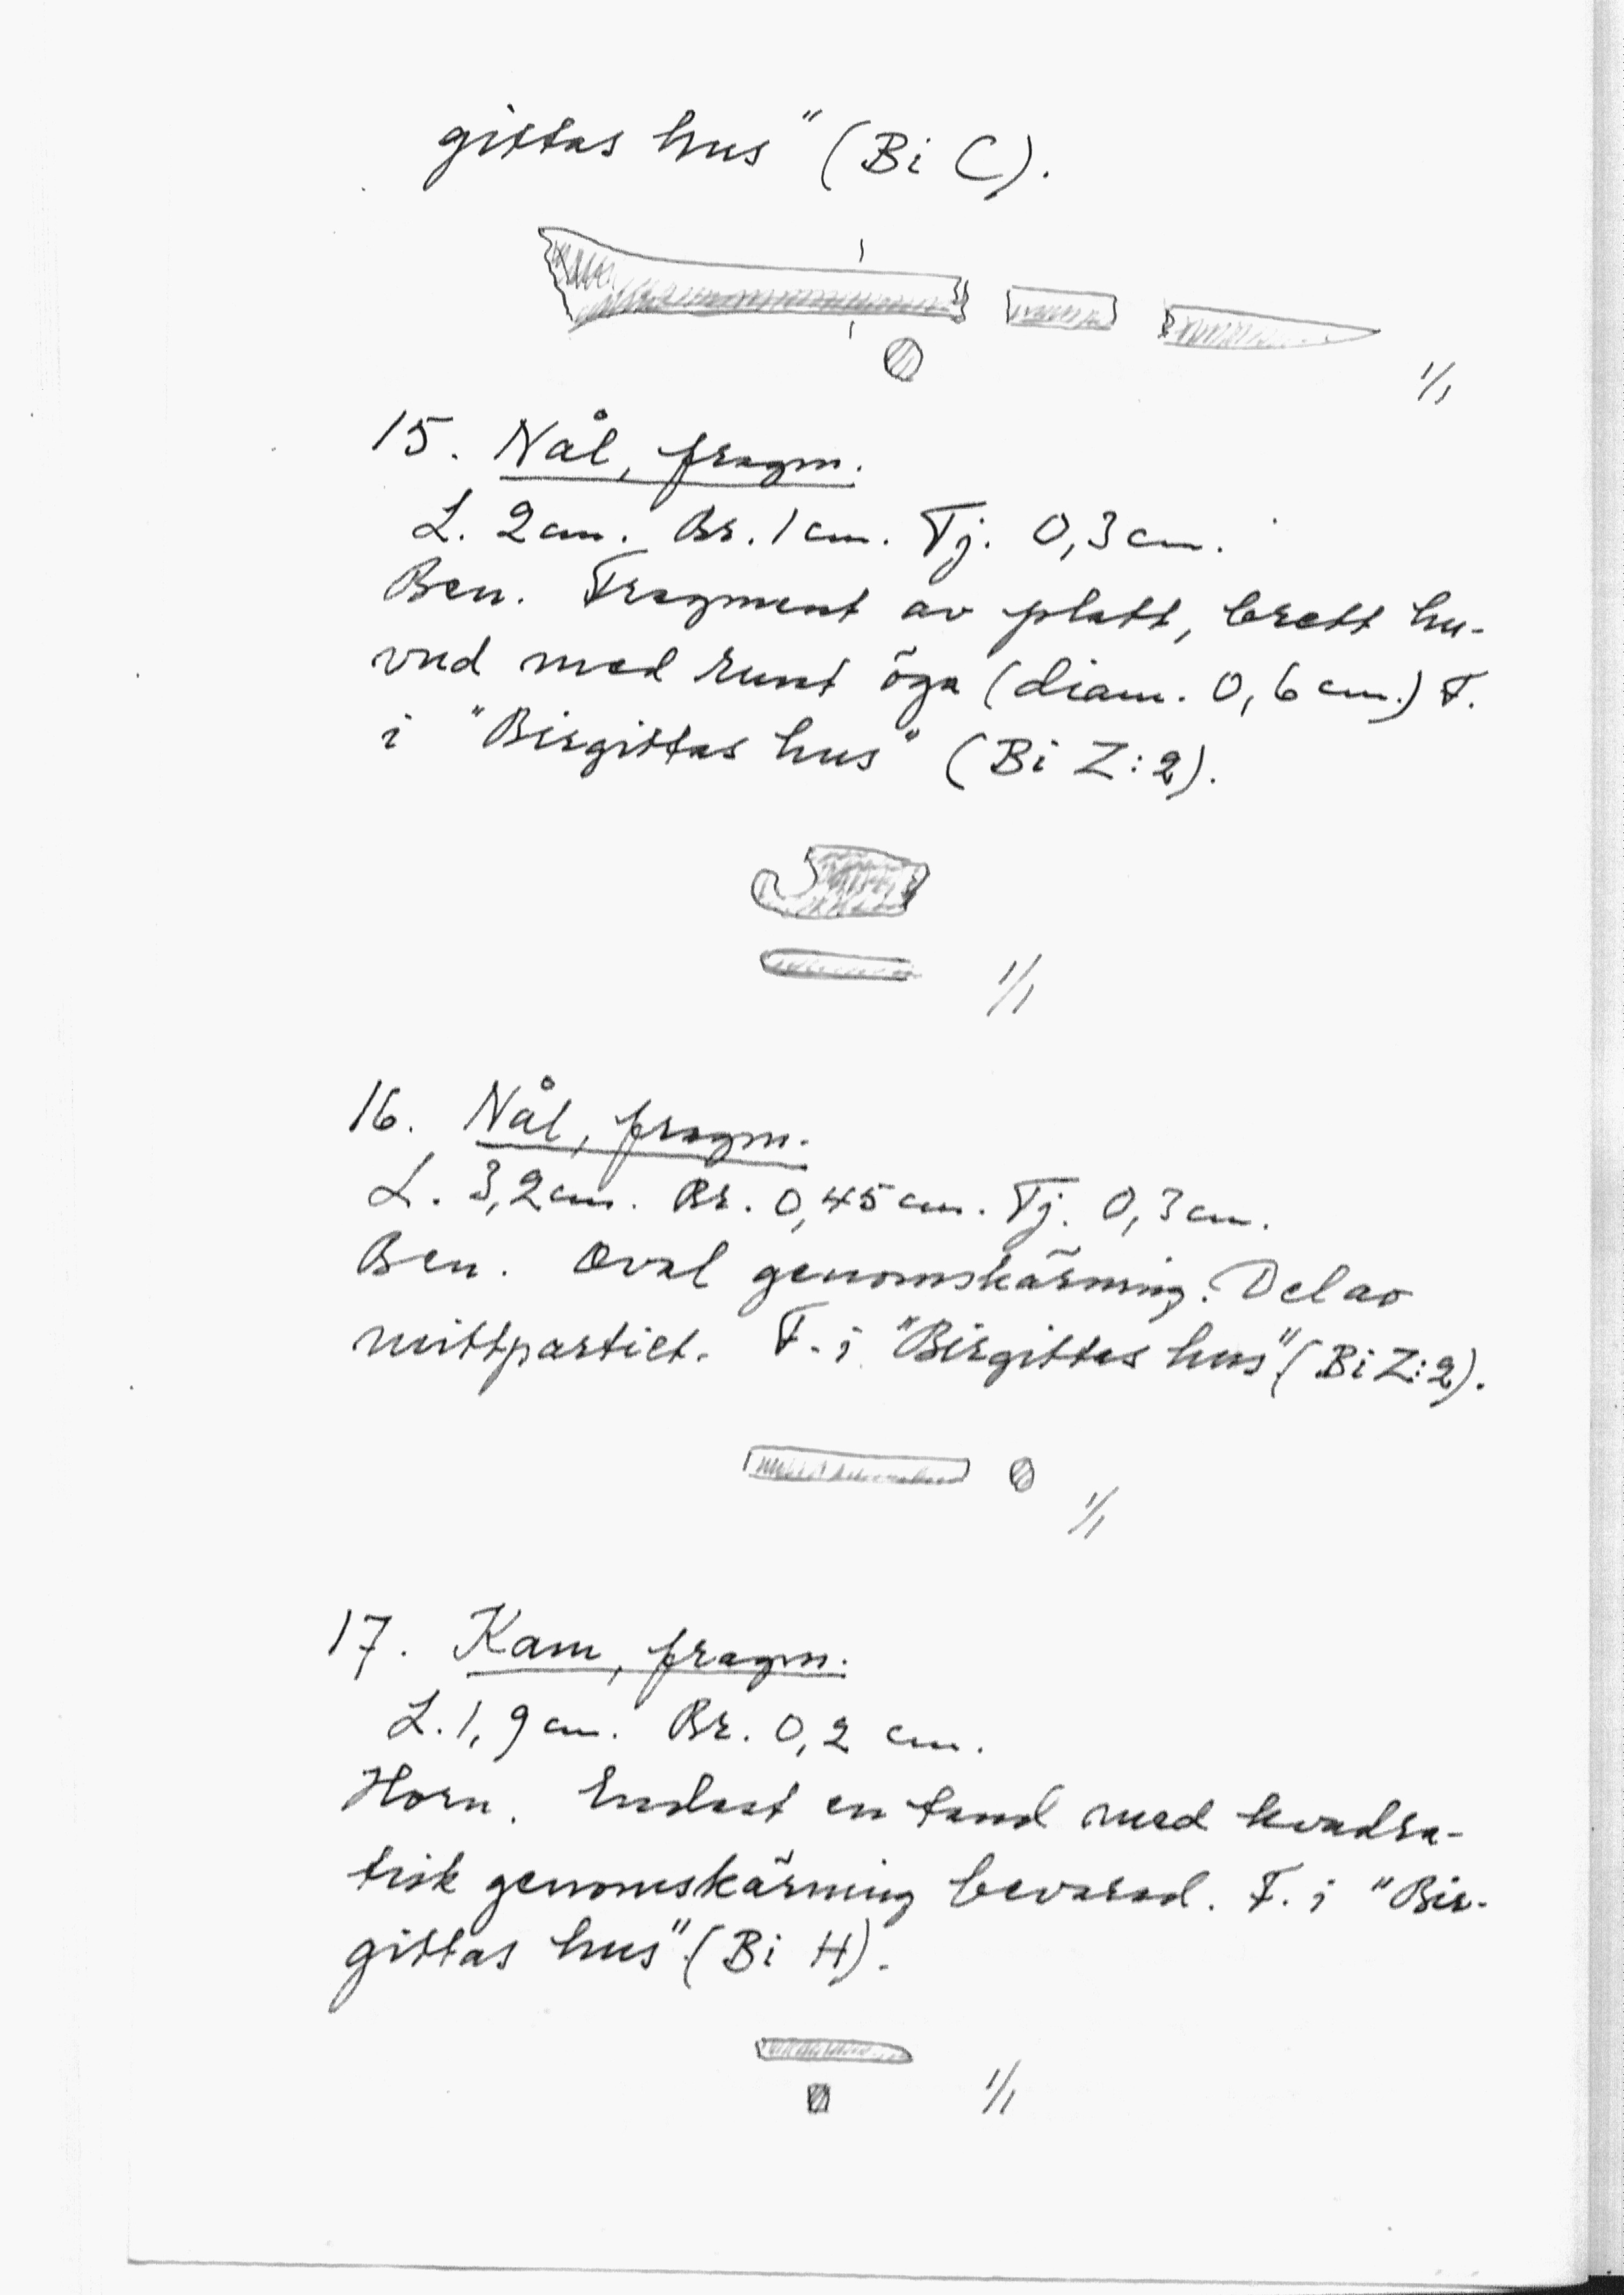 gittas hus" (Bi C).
1/1
15. Nål, fragm.
L. 2 cm. Br. 1 cm. Tj. 0,3 cm.
Ben. Fragment av platt, brett hu-
vud med runt öga (diam. 0,6 cm.) F.
i "Birgittas hus" (Bi Z:2).
1/1
16. Nål, fragm.
L. 3,2 cm. Br. 0,45 cm. Tj. 0,3 cm.
Ben. Oval genomskärning. Del av
mittpartiet. F. i "Birgittas hus" (Bi Z:2).
1/1
17. Kam, fragm.
L. 1,9 cm. Br. 0,2 cm.
Horn. Endast en tand med kvadra-
tisk genomskärning bevarad. F. i "Bir-
gittas hus" (Bi H).
1/1